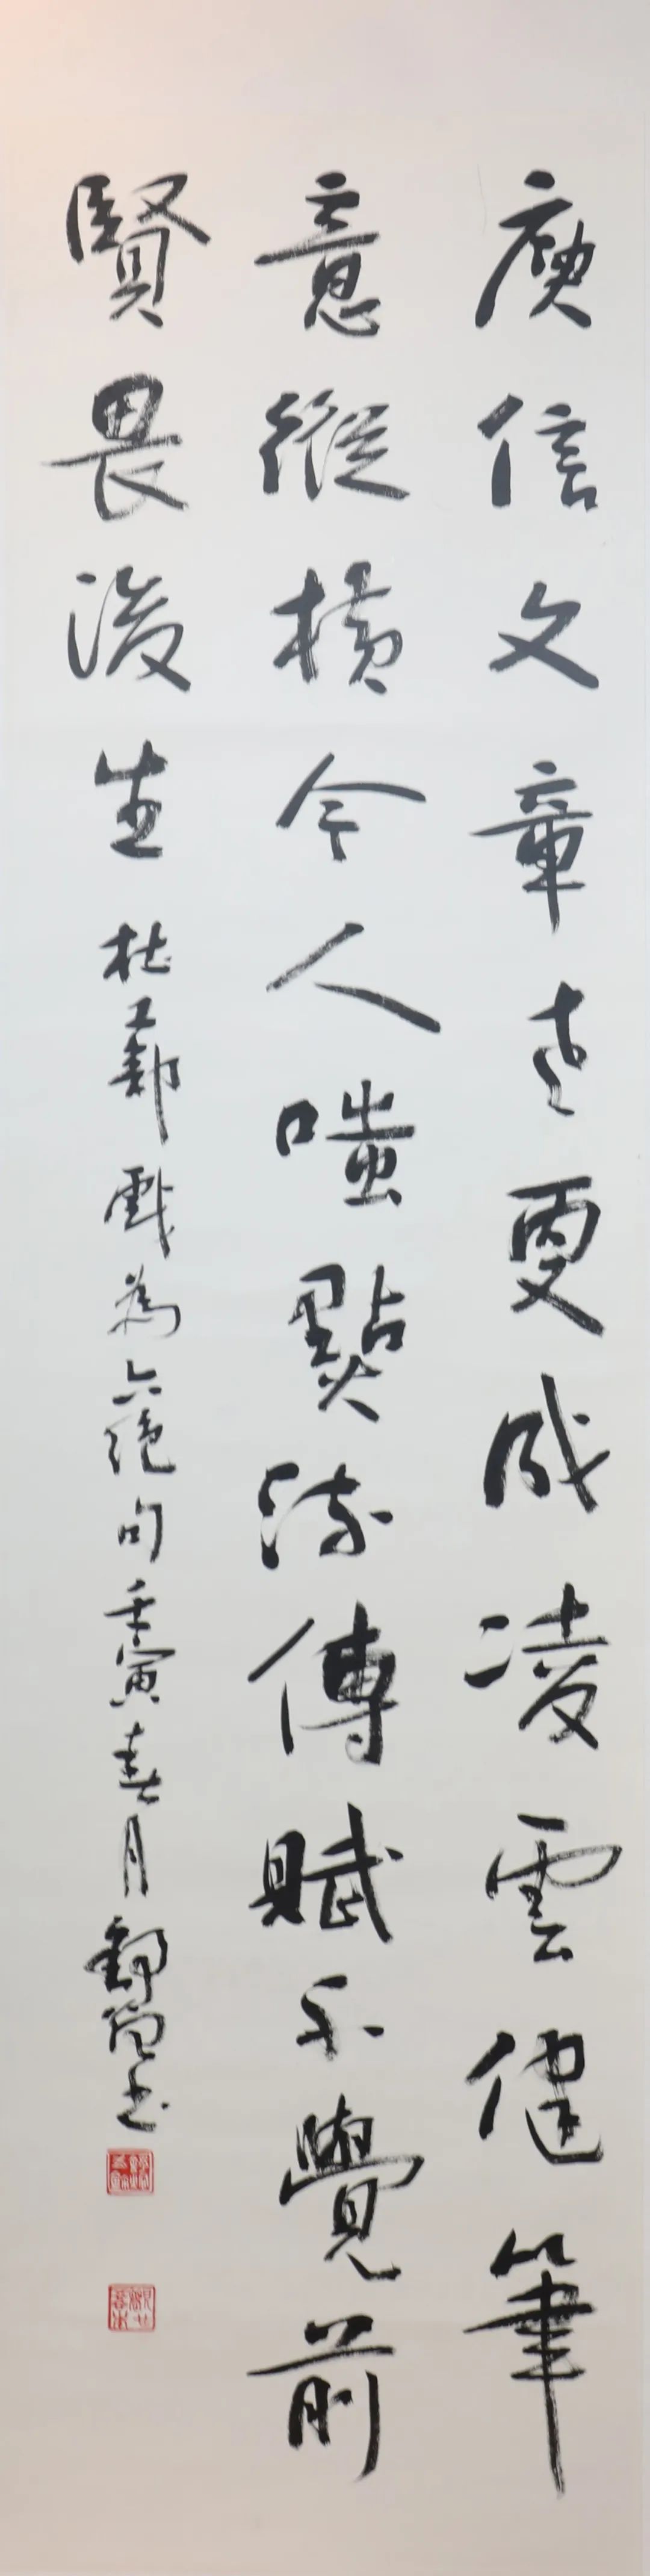 庾信文章老更成凌雲健筆
意縱橫今人嗤點流傳賦不覺前
賢畏後生杜工部戲為六絕句壬寅春月書